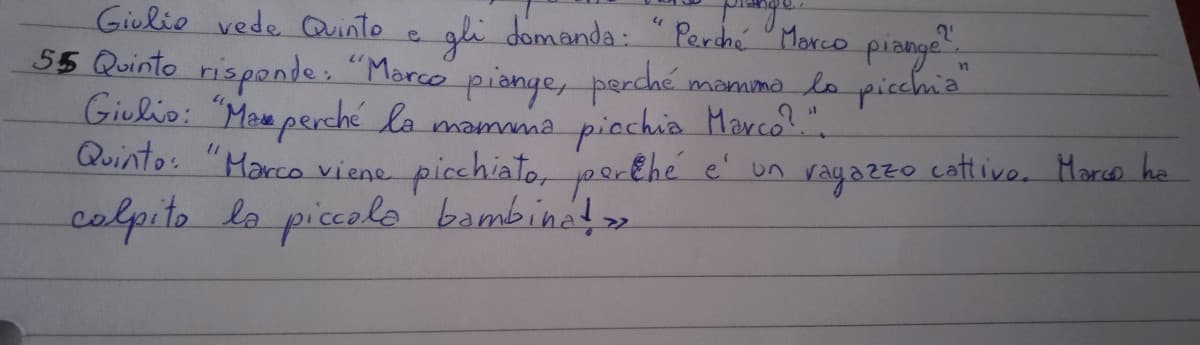 piange.
Giulio vede Quinto e gli domanda: "Perché Marco piange?".
55 Quinto risponde: "Marco piange, perché mamma lo picchia"
Giulio: "Ma perché la mamma picchia Marco?".
Quinto: "Marco viene picchiato, perché e' un ragazzo cattivo. Marco ha
colpito la piccola bambina!»